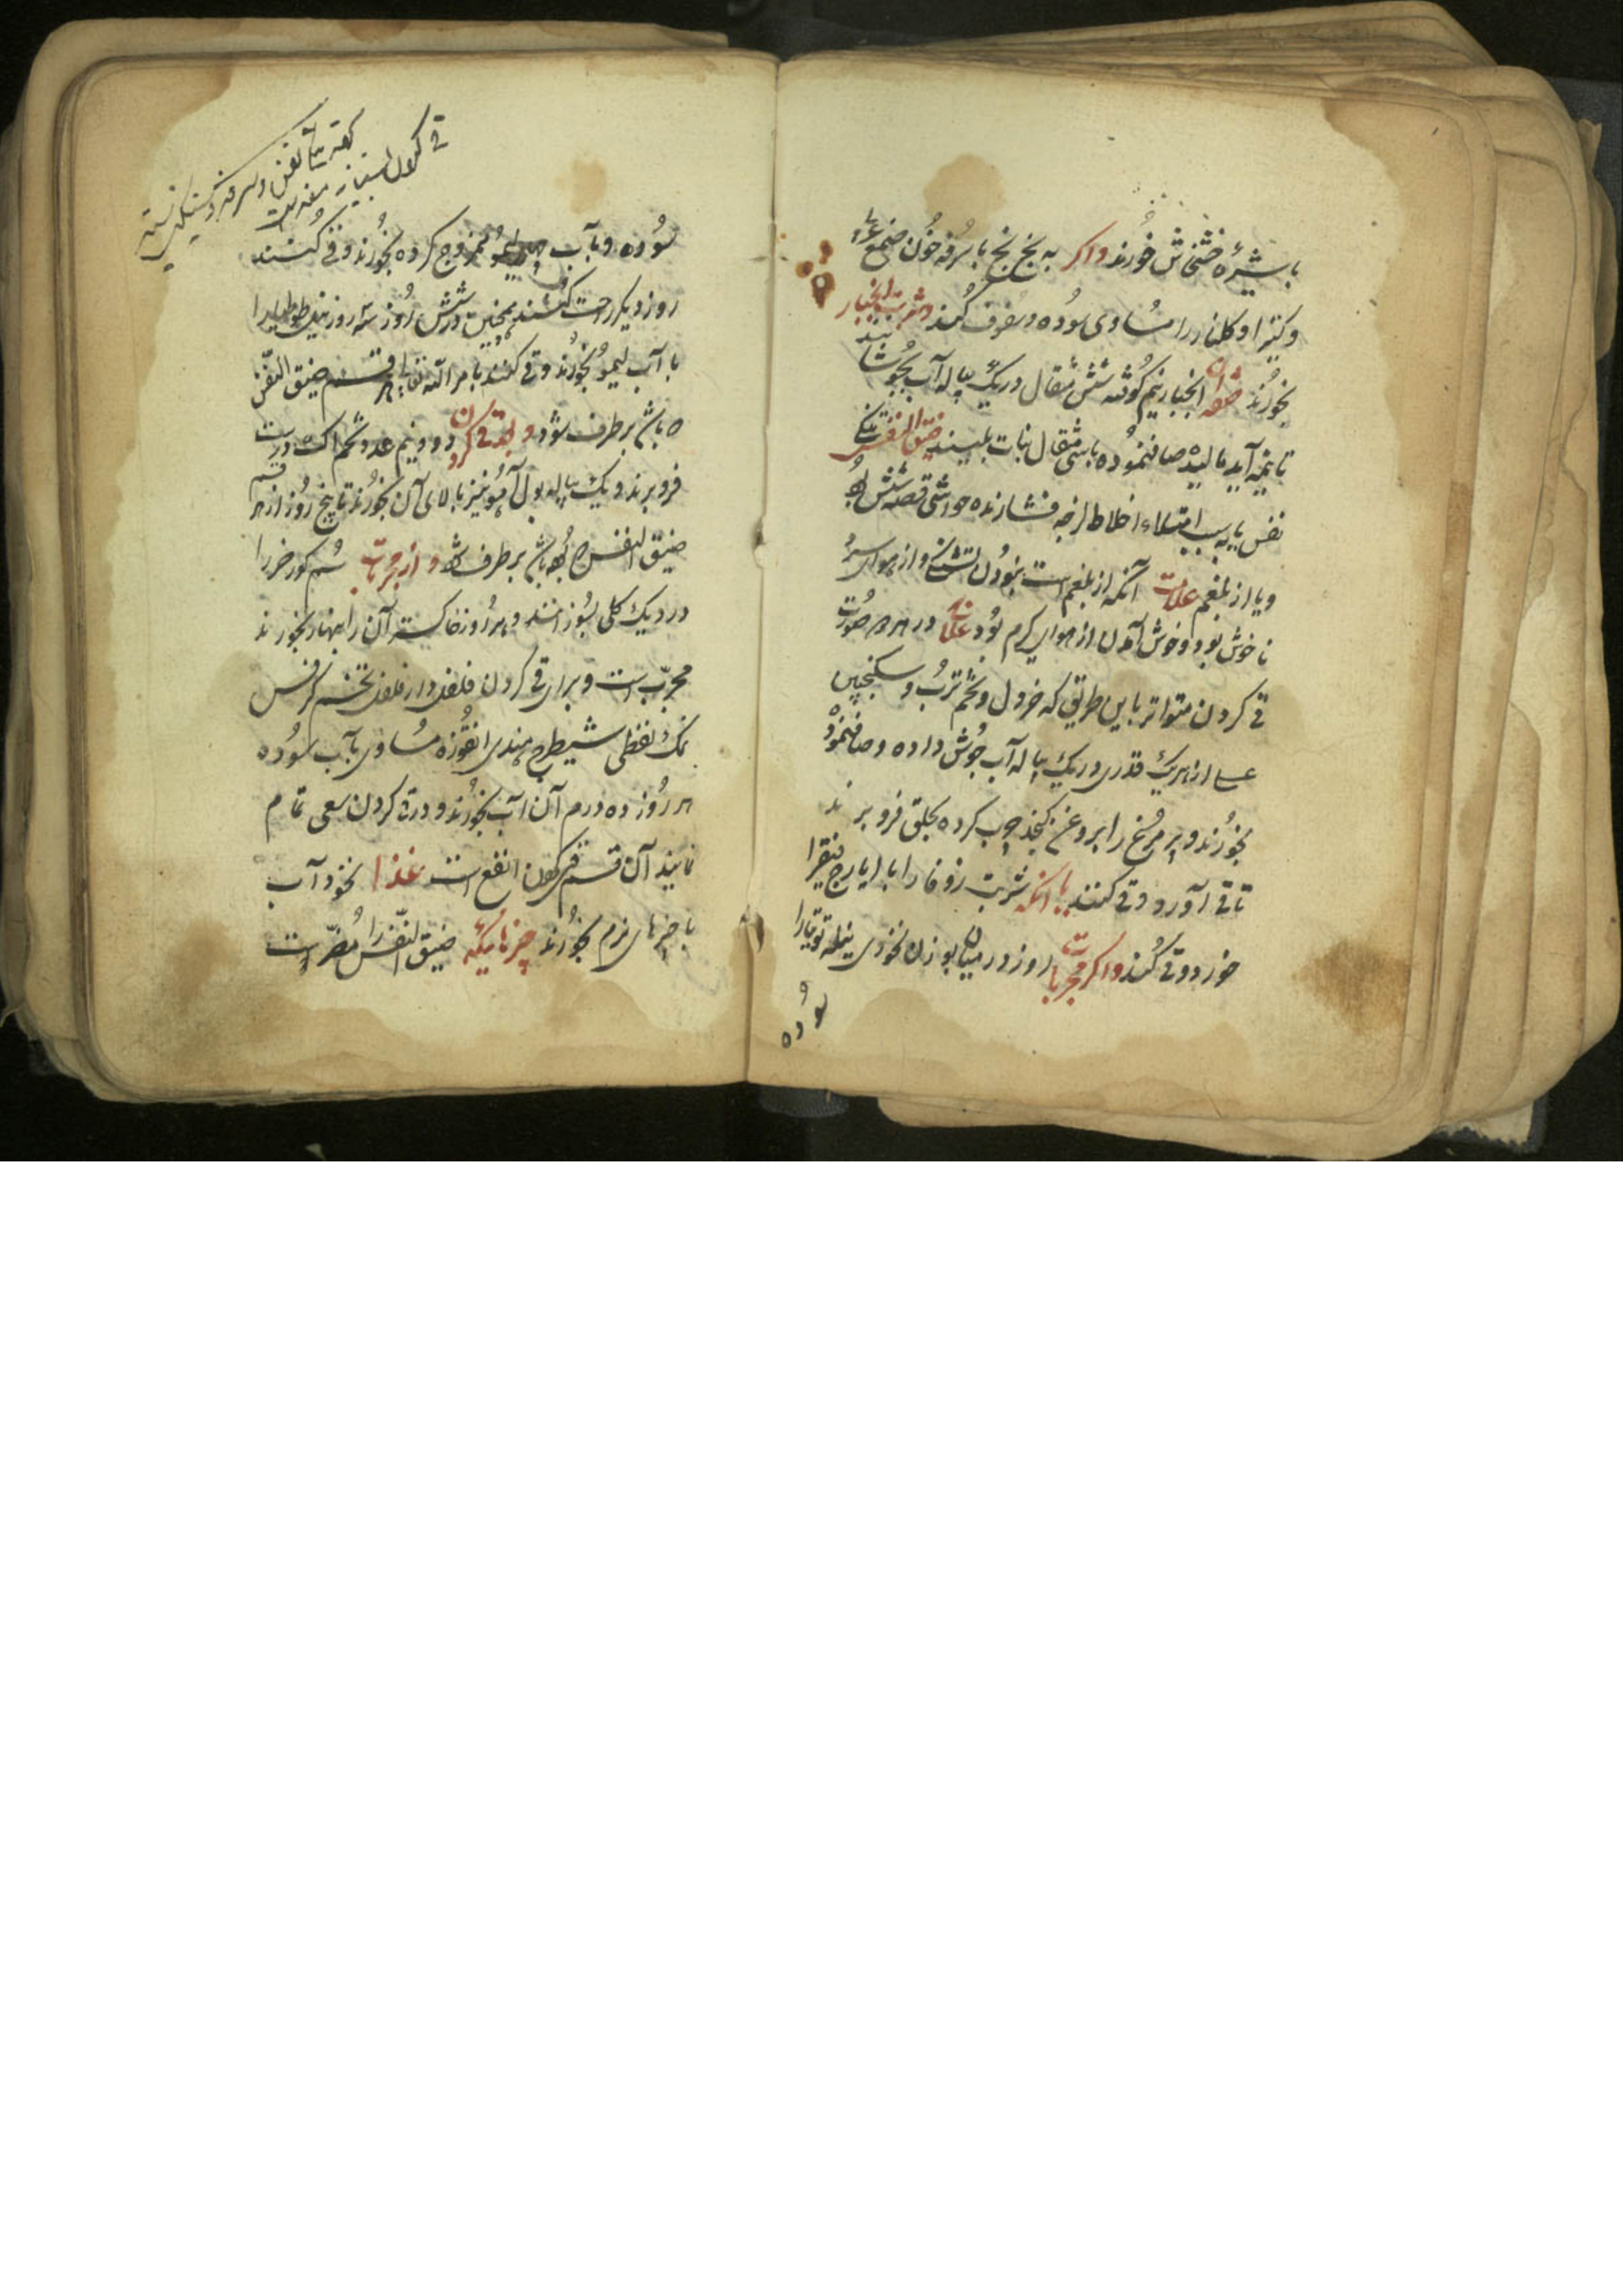 با شیرهٔ خشخاش خورند واکر به نخ نخ با سرفه خون صمغ عربی
وکتیرا وکلنار را مساوی سوده وسفوف کنند وشربت انجبار
بخورند صفة ان انجبار نیم کوفته شش مثقال در یک پیاله آب بجوشانند
تا نیمه آید مالیده صاف نموده با شش مثقال نبات بلیسند ضیق النفس تنکی
نفس یا به سبب امتلاء اخلاط لزجه فشارنده حواشی قصبه شش بود
ویا از بلغم علامت آنکه از بلغم است نبودن تشنکی واز هوای سرد
ناخوش بود وخوش آمدن از هوای کرم بود علاج در هر دو صورت
قی کردن متواتر باین طریق که خردل وتخم ترب وسکنجبین
عسلی از هریک قدری در یک پیاله آب جوش داده وصاف نموده
بخورند وپر مرغ را بروغن کنجد چرب کرده بحلق فرو برند
تا قی آورد وقی کنند یا آنکه شربت زوفا را با ایارج فیقرا
خورد وقی کنند واکر مجربات روز در میان بوزن نخودی نیله توتیا را
سوده
قی کردن بسیار مفید است
سوده وبآب لیمو ممزوج کرده بخورند وقی کنند
روز دیکر راحت کنند همچنین در شش روز سه روز نیله طوطیا را
با آب لیمو بخورند وقی کنند بامر الله تعالی هر قسم ضیق النفس
که باشد برطرف شود وبعد قی کردن دو ونیم عدد تخم اک درست
فرو برند ویک پیاله بول آهو نیز بالای آن بخورند تا پنج روز از هر قسم
ضیق النفس که بوده باشد برطرف شود واز مجربات سم کورخر را
در دیک کلی بسوزانند وهر روز خاکستر آن را بنهار بخورند
مجرب است وبرای قی کردن فلفل دار فلفل تخم کرفس
نمک نفطی شیطرج هندی انقوزه مساوی بآب سوده
هر روز ده درم آن آب بخورند ودر قی کردن سعی تمام
نمایند آن قسم قی کردن انفع است غذا نخود آب
با چیزهای نرم بخورند چیزهائیکه ضیق النفس را مضر است